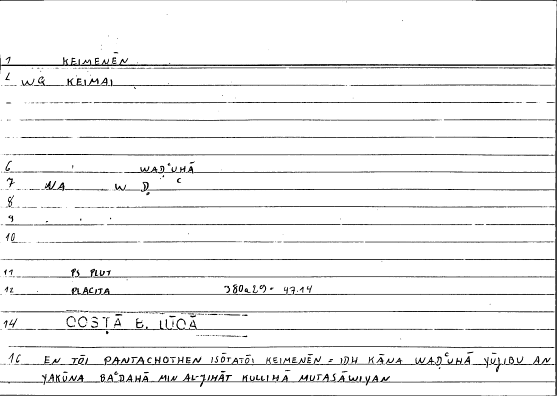 1 KEIMENĒN
2 WG KEIMAI
6 WAḌᶜUHĀ
7 NA W Ḍ ᶜ
8
9
10
11 PS PLUT
12 PLACITA 380a29 - 47.14
14 QOSṬĀ B. LŪQĀ
16 EN TŌI PANTACHOTHEN ISŌTATŌI KEIMENĒN = IDH KĀNA WAḌᶜUHĀ YŪJIBU AN
YAKŪNA BAᶜDAHĀ MIN AL-JIHĀT KULLIHĀ MUTASĀWIYAN